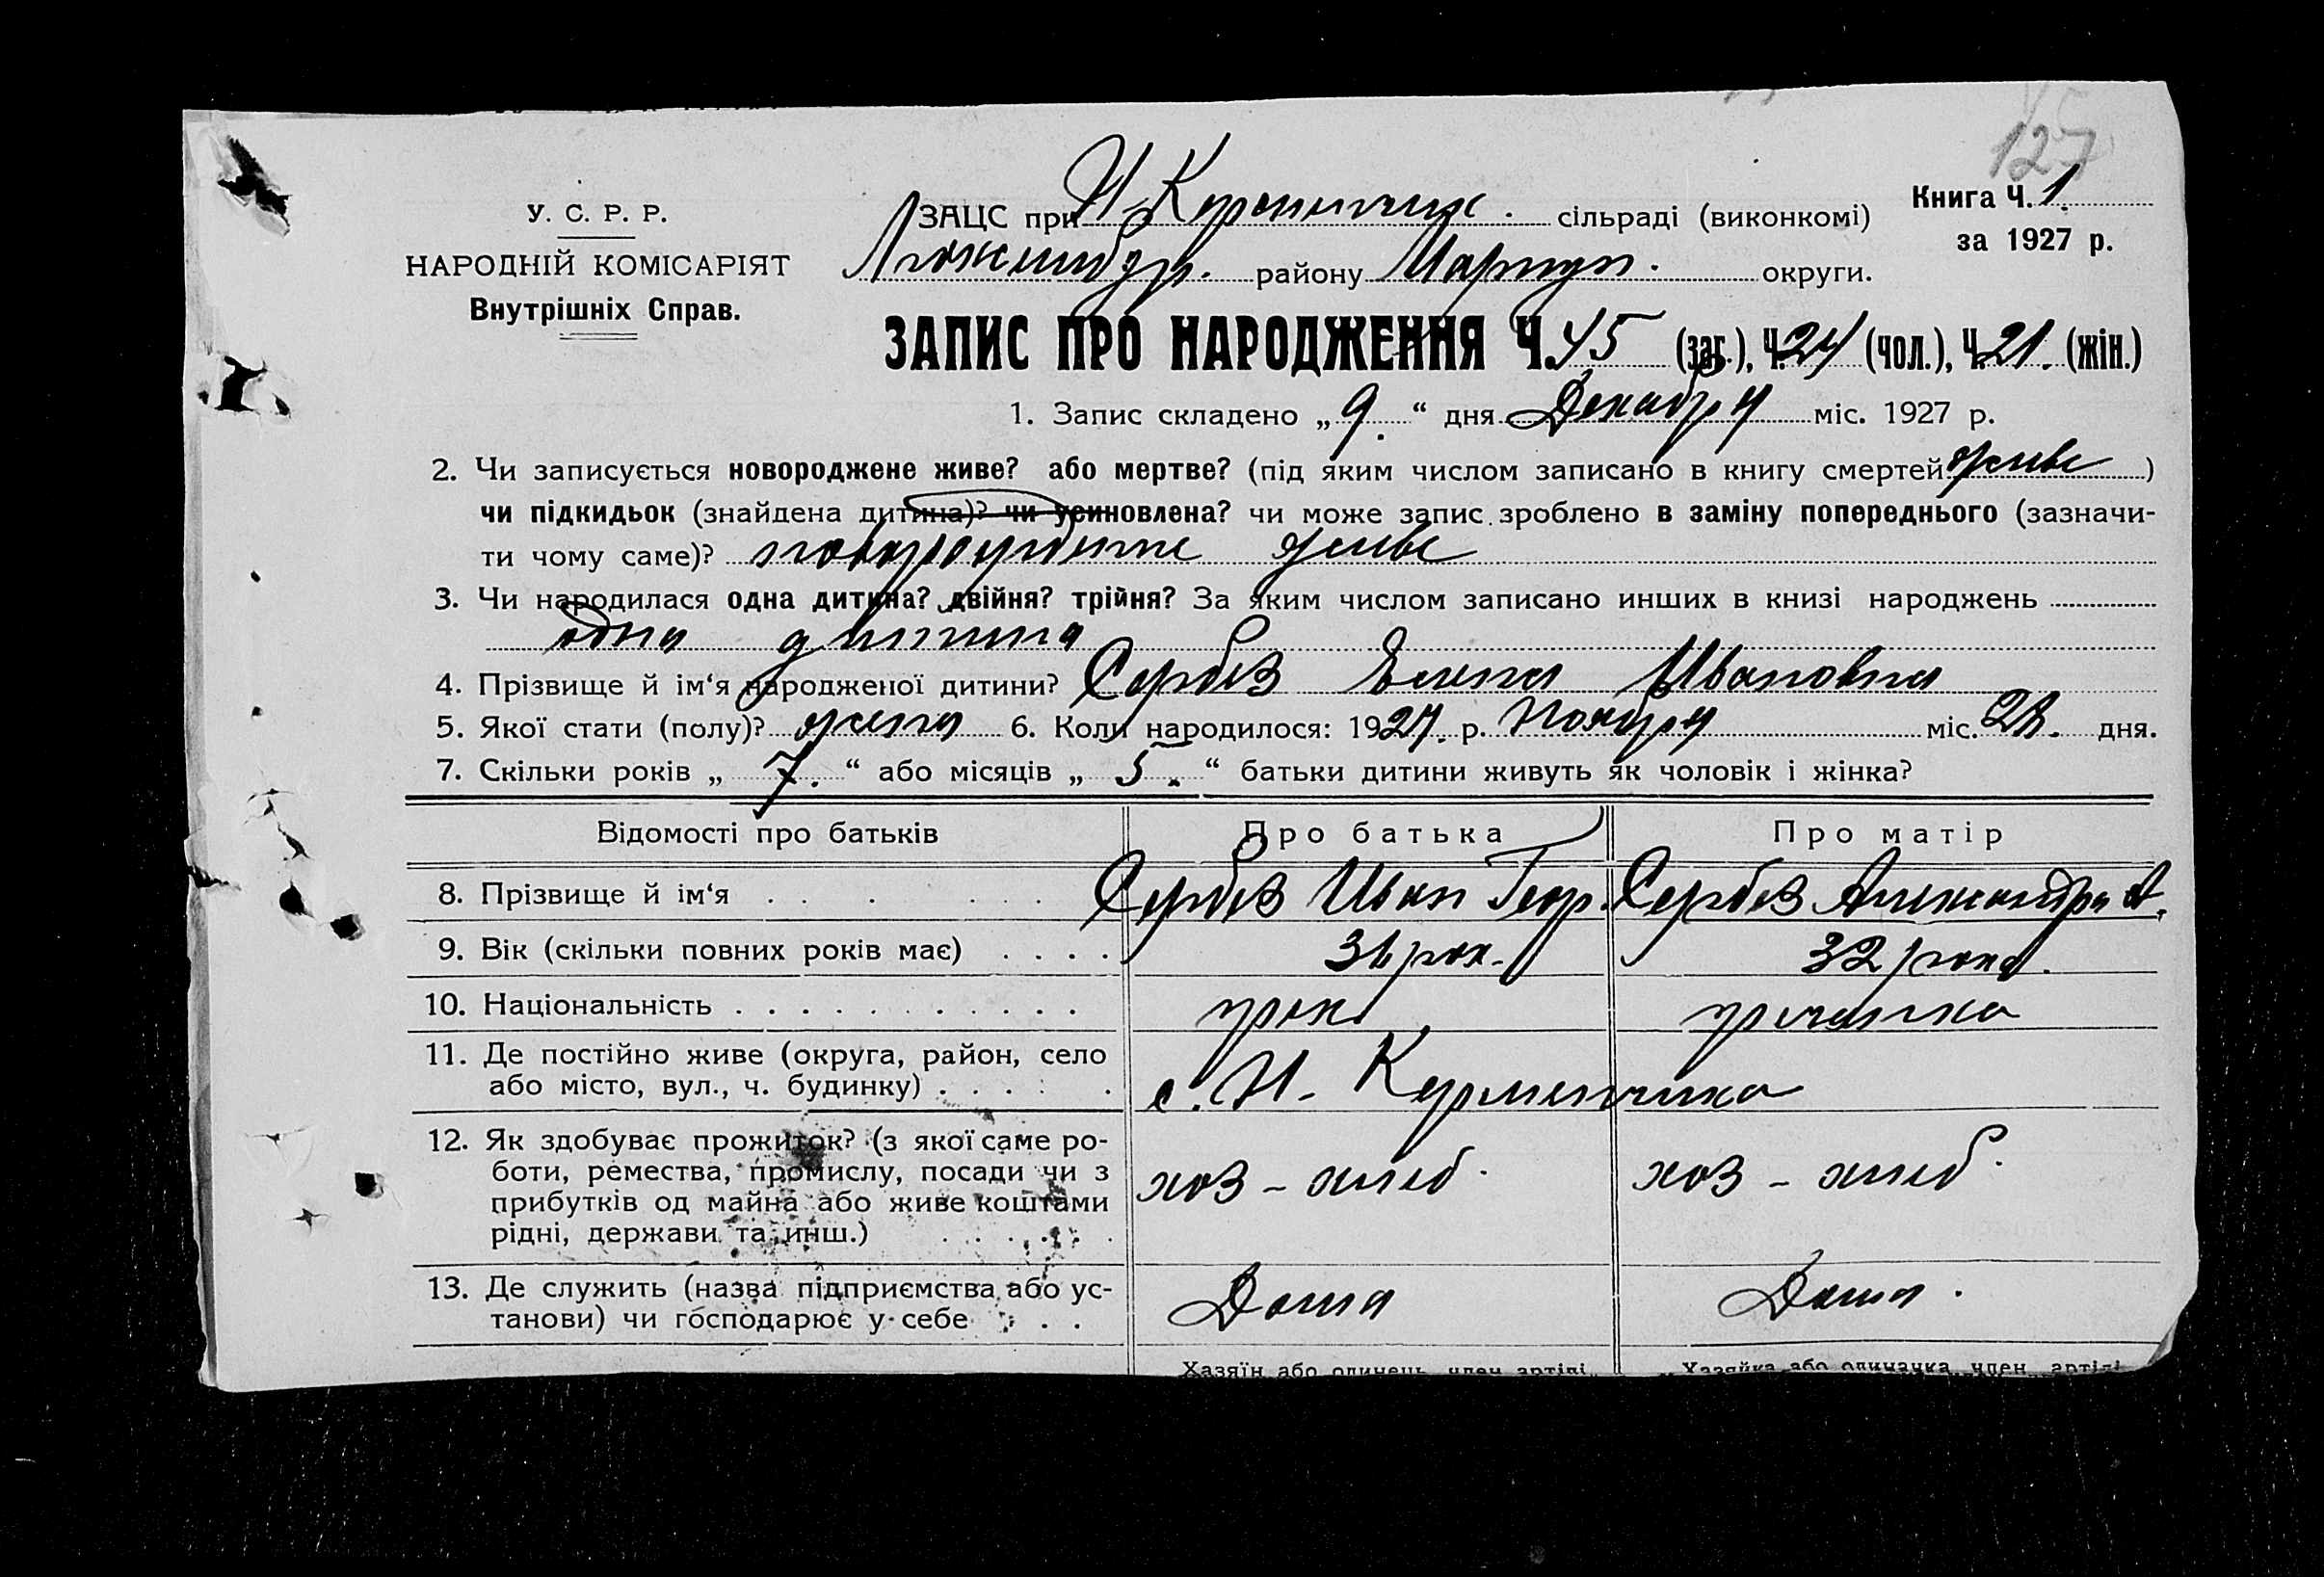 127
У. С. Р. Р.
НАРОДНІЙ КОМІСАРІЯТ
Внутрішніх Справ.
ЗАЦС при Н-Курменчик. сільраді (виконкомі)
району Мариуп. округи.
Книга Ч. 1.
за 1927 р.
ЗАПИС ПРО НАРОДЖЕННЯ Ч. 45 (заг.), Ч. 24 (чол.), Ч. 21. (жін.)
1. Запис складено „ 9. “ дня Декабря міс. 1927 р.
2. Чи записується новороджене живе? або мертве? (під яким числом записано в книгу смертей живе )
чи підкидьок (знайдена дитина)? чи усиновлена? чи може запис зроблено в заміну попереднього (зазначи-
ти чому саме)? живе
3. Чи народилася одна дитина? двійня? трійня? За яким числом записано инших в книзі народжень
одна дитина
4. Прізвище й ім‘я народженої дитини? Сербез Елена Ивановна
5. Якої стати (полу)? жена 6. Коли народилося: 1927. р. Ноября міс. 28. дня.
7. Скільки років „ 7. “ або місяців „ 5. “ батьки дитини живуть як чоловік і жінка?
Відомості про батьків Про батька Про матір
8. Прізвище й ім‘я Сербез Иван Геор. Сербез Александра А.
9. Вік (скільки повних років має) 31 рок. 32 рока.
10. Національність грек гречанка
11. Де постійно живе (округа, район, село
або місто, вул., ч. будинку) с. Н- Курменчика
12. Як здобуває прожиток? (з якої саме ро-
боти, ремества, промислу, посади чи з
прибутків од майна або живе коштами
рідні, держави та инш.)
хоз - хлеб. хоз - хлеб.
13. Де служить (назва підприємства або ус-
танови) чи господарює у себе
Дома Дома.
Хазяїн або одинець, член артілі, Хазяйка або одиначка, член артілі